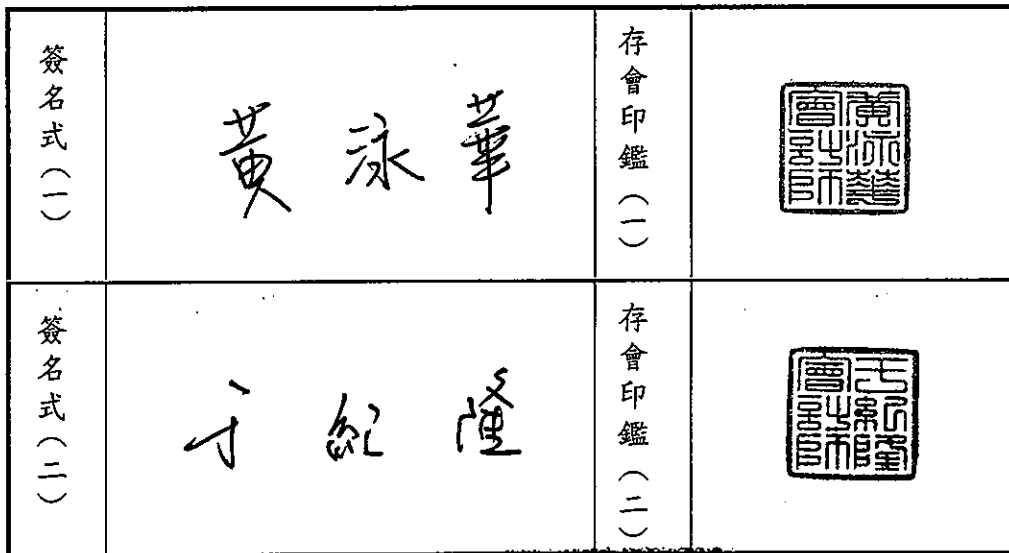 簽名式（一）
黃泳華
存會印鑑（一）
黃泳華會計師
簽名式（二）
于紀隆
存會印鑑（二）
于紀隆會計師